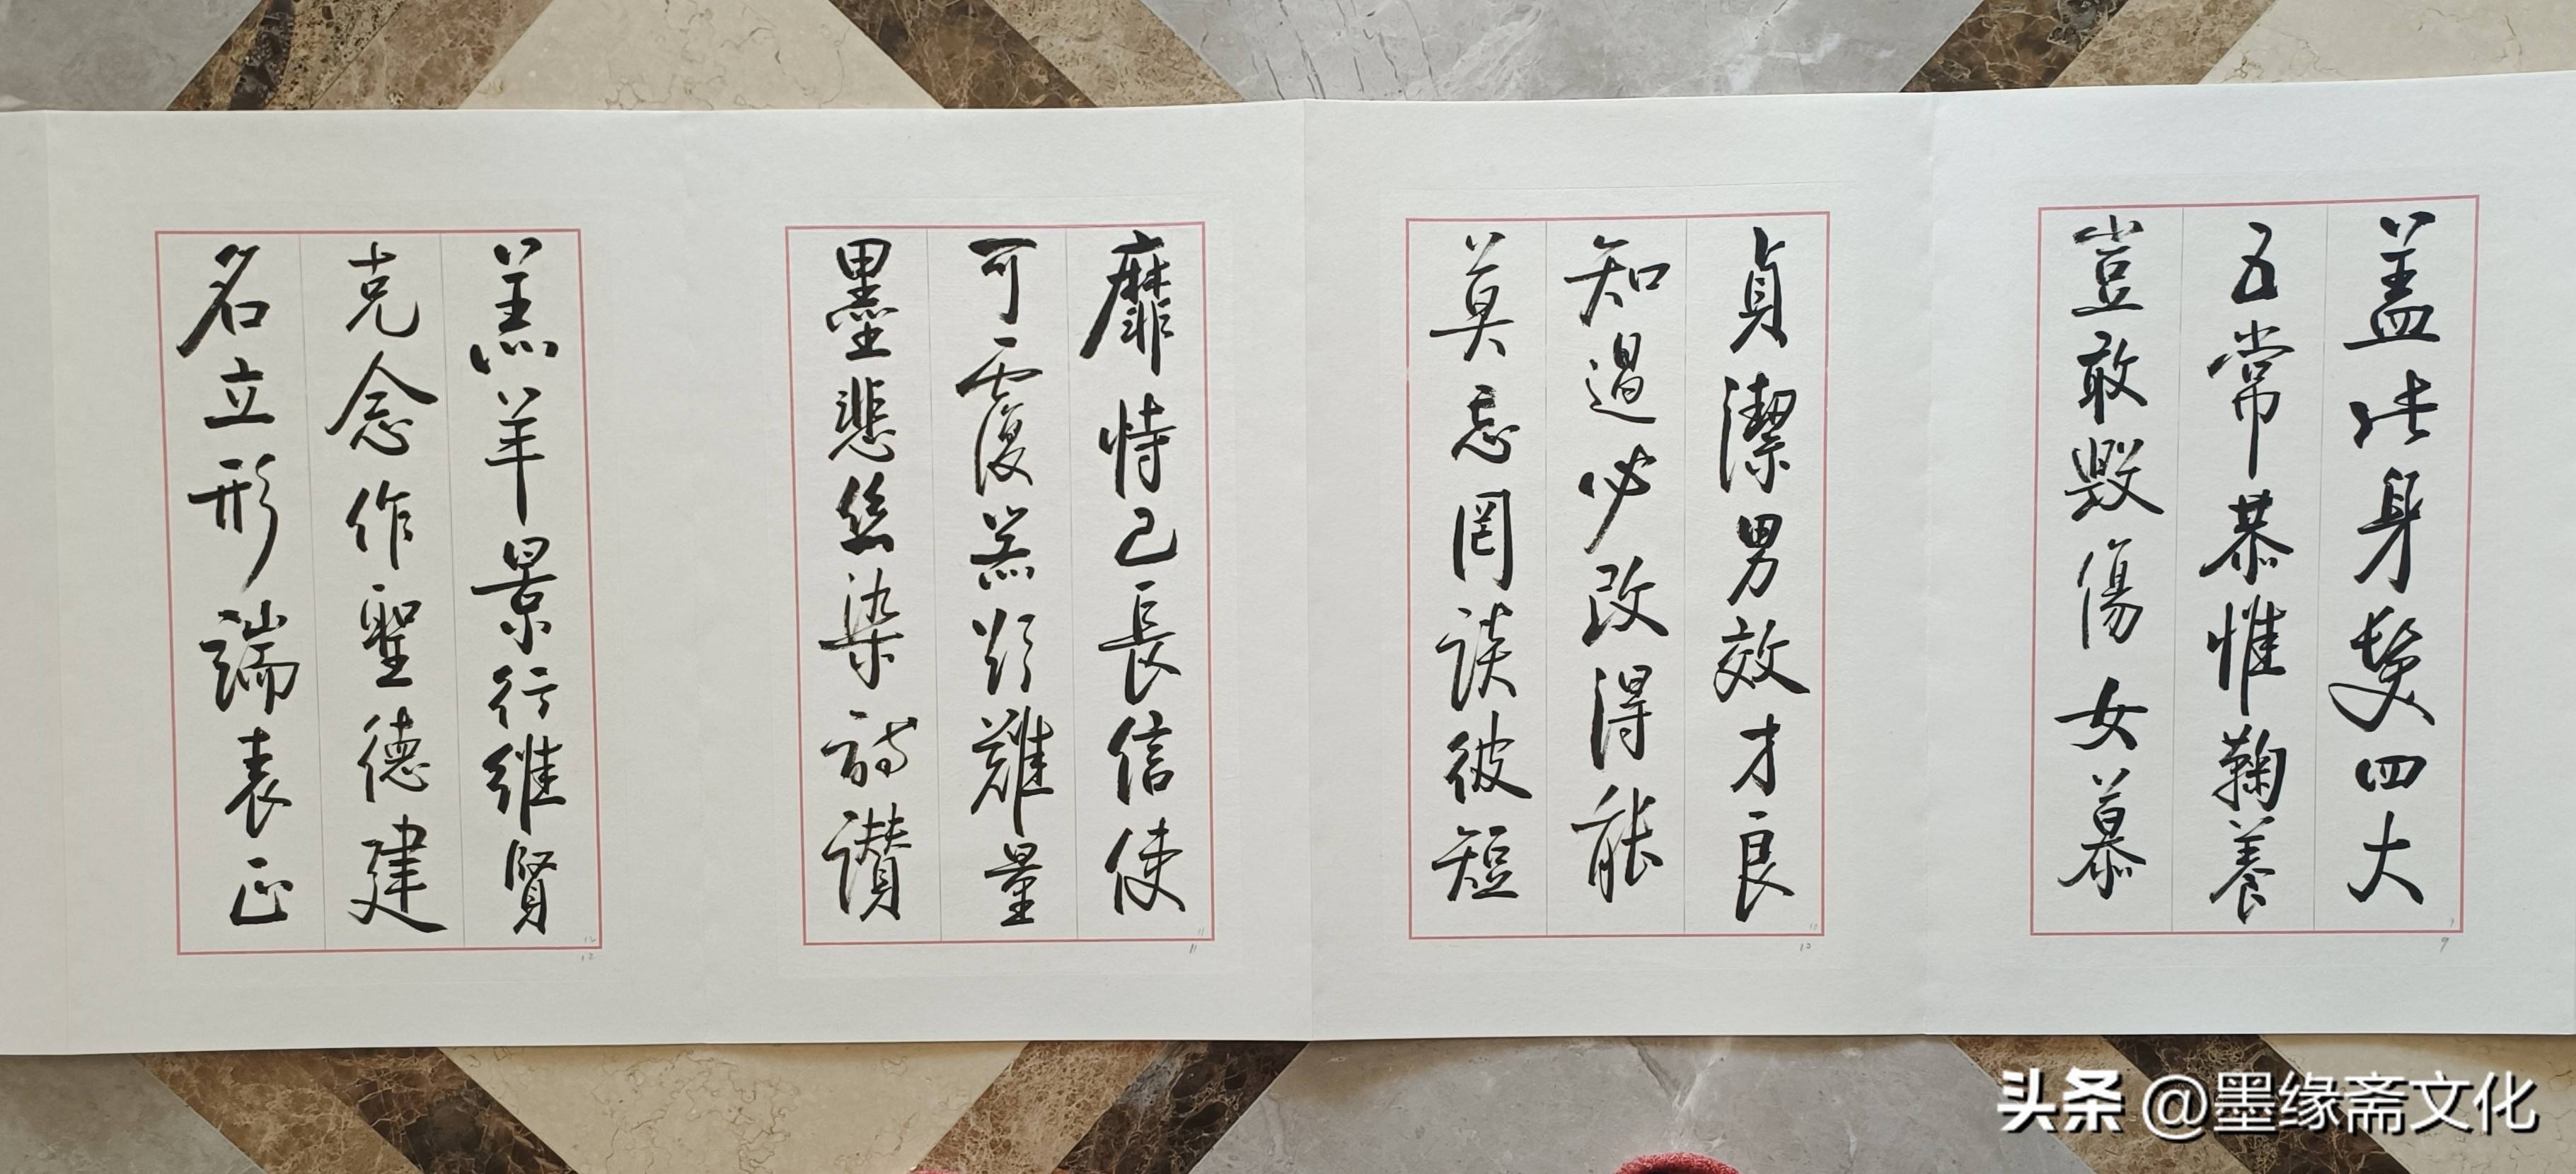 盖此身髮四大
五常恭惟鞠養
豈敢毀傷女慕
9
貞潔男效才良
知過必改得能
莫忘罔談彼短
10
靡恃己長信使
可覆器欲難量
墨悲絲染詩讃
11
羔羊景行維賢
克念作聖德建
名立形端表正
12
头条 @墨缘斋文化